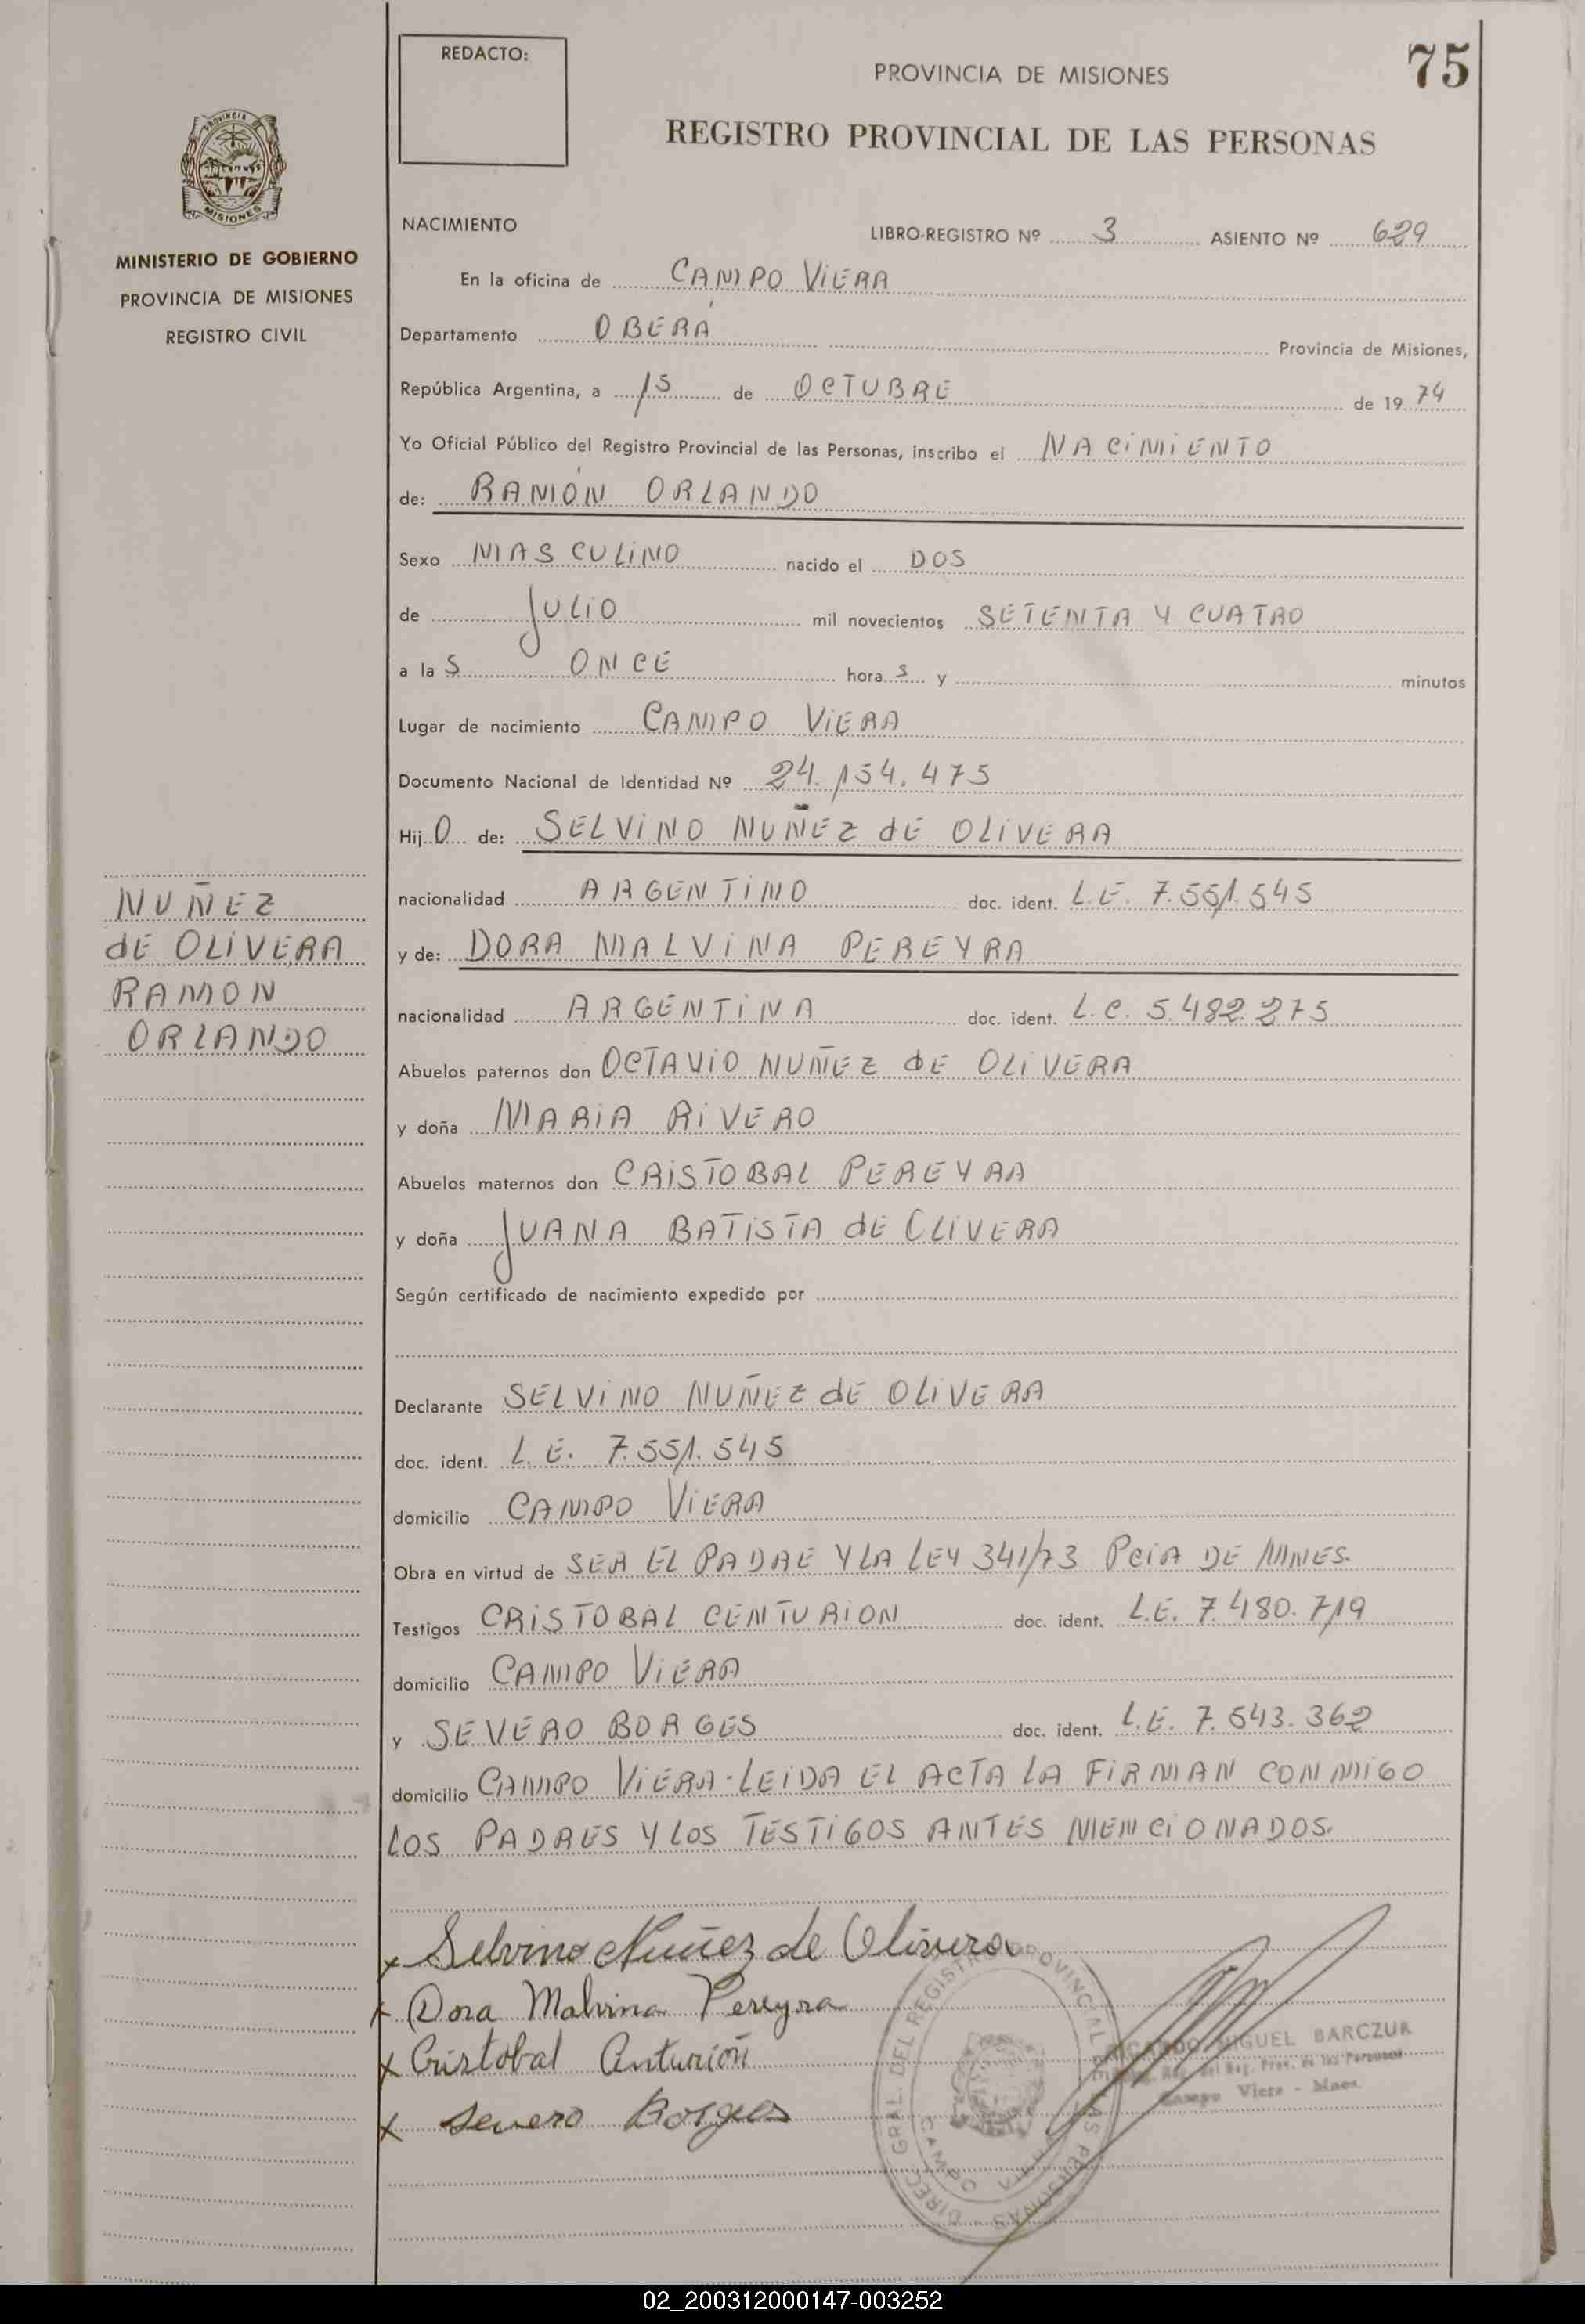 REDACTO:
PROVINCIA DE MISIONES
75
REGISTRO PROVINCIAL DE LAS PERSONAS
PROVINCIA DE
MISIONES
MINISTERIO DE GOBIERNO
PROVINCIA DE MISIONES
REGISTRO CIVIL
NACIMIENTO
LIBRO-REGISTRO Nº 3 ASIENTO Nº 629
En la oficina de CAMPO VIERA
Departamento OBERÁ Provincia de Misiones,
República Argentina, a 15 de OCTUBRE de 19 74
Yo Oficial Público del Registro Provincial de las Personas, inscribo el NACIMIENTO
de: RAMÓN ORLANDO
Sexo MASCULINO nacido el DOS
de JULIO mil novecientos SETENTA Y CUATRO
a la S ONCE hora s y minutos
Lugar de nacimiento CAMPO VIERA
Documento Nacional de Identidad Nº 24.154.475
Hij O de: SELVINO NUÑEZ dE OLIVERA
nacionalidad ARGENTINO doc. ident. L.E. 7.551.545
y de: DORA MALVINA PEREYRA
nacionalidad ARGENTINA doc. ident. L.C. 5.482.275
NUÑEZ
dE OLIVERA
RAMON
ORLANDO
Abuelos paternos don OCTAVIO NUÑEZ dE OLIVERA
y doña MARIA RIVERO
Abuelos maternos don CRISTOBAL PEREYRA
y doña JUANA BATISTA dE OLIVERA
Según certificado de nacimiento expedido por
Declarante SELVINO NUÑEZ dE OLIVERA
doc. ident. L.E. 7.551.545
domicilio CAMPO VIERA
Obra en virtud de SER EL PADRE Y LA LEY 341/73 PCIA DE MNES.
Testigos CRISTOBAL CENTURION doc. ident. L.E. 7.480.719
domicilio CAMPO VIERA
y SEVERO BORGES doc. ident. L.E. 7.543.362
domicilio CAMPO VIERA-LEIDA EL ACTA LA FIRMAN CONMIGO
LOS PADRES Y LOS TESTIGOS ANTES MENCIONADOS.
x Selvino Nuñez de Olivera
x Dora Malvina Pereyra
x Cristobal Centurión
x Severo Borges
DIREC. GRAL. DEL REGISTRO PROVINCIAL DE LAS PERSONAS
CAMPO VIERA
RICARDO MIGUEL BARCZUK
Reg. del Reg. Prov. de las Personas
Campo Viera - Mnes.
02_200312000147-003252